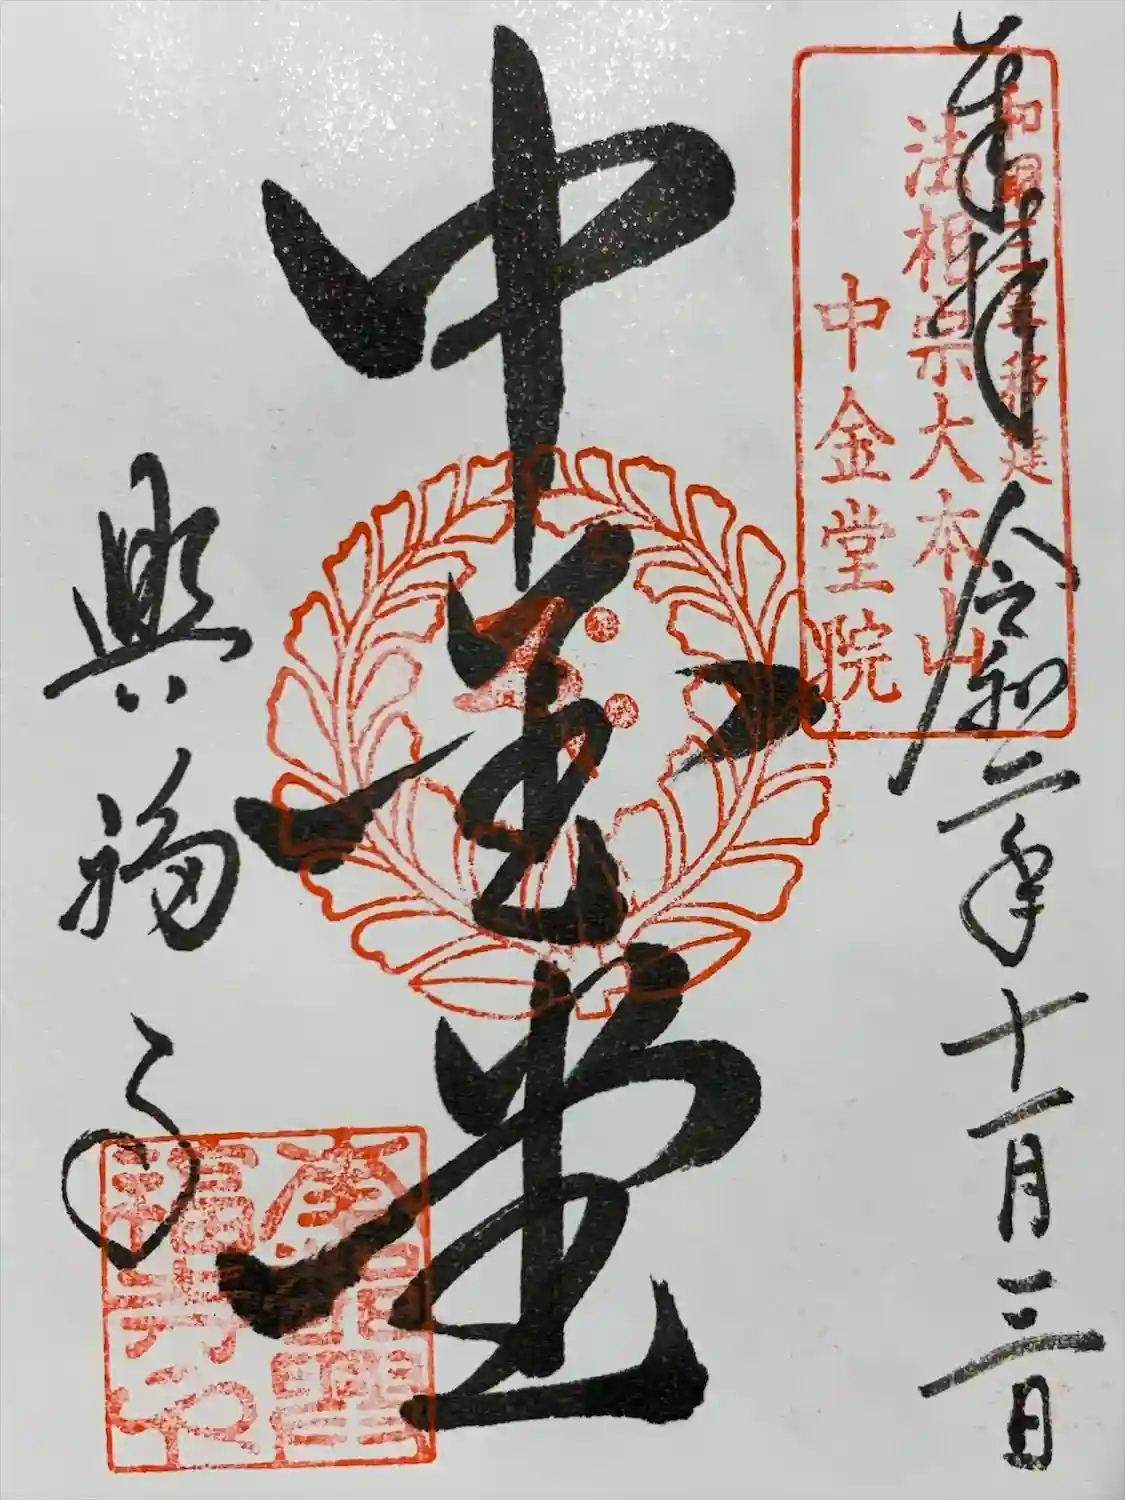 奉拝 令和二年十一月三日
和銅三年移建
法相宗大本山
中金堂院
中金堂
興福寺